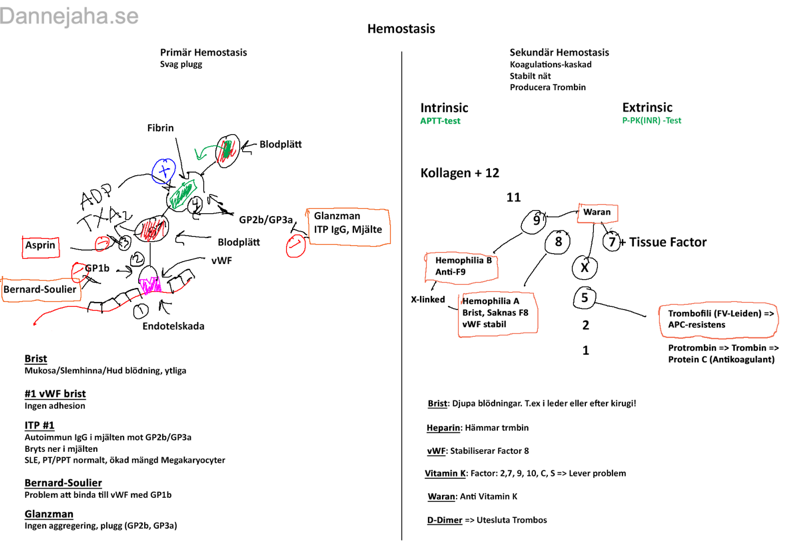 Dannejaha.se
Hemostasis
Primär Hemostasis
Svag plugg
Fibrin
Blodplätt
+
ADP
TXA2
4
GP2b/GP3a
Glanzman
ITP IgG, Mjälte
Asprin
3
Blodplätt
2
GP1b
vWF
Bernard-Soulier
1
Endotelskada
Brist
Mukosa/Slemhinna/Hud blödning, ytliga
#1 vWF brist
Ingen adhesion
ITP #1
Autoimmun IgG i mjälten mot GP2b/GP3a
Bryts ner i mjälten
SLE, PT/PPT normalt, ökad mängd Megakaryocyter
Bernard-Soulier
Problem att binda till vWF med GP1b
Glanzman
Ingen aggregering, plugg (GP2b, GP3a)
Sekundär Hemostasis
Koagulations-kaskad
Stabilt nät
Producera Trombin
Intrinsic
APTT-test
Extrinsic
P-PK(INR) -Test
Kollagen + 12
11
9
Waran
8
7 + Tissue Factor
Hemophilia B
Anti-F9
X
X-linked
Hemophilia A
Brist, Saknas F8
vWF stabil
5
Trombofili (FV-Leiden) =>
APC-resistens
2
1
Protrombin => Trombin =>
Protein C (Antikoagulant)
Brist: Djupa blödningar. T.ex i leder eller efter kirugi!
Heparin: Hämmar trmbin
vWF: Stabiliserar Factor 8
Vitamin K: Factor: 2,7, 9, 10, C, S => Lever problem
Waran: Anti Vitamin K
D-Dimer => Utesluta Trombos